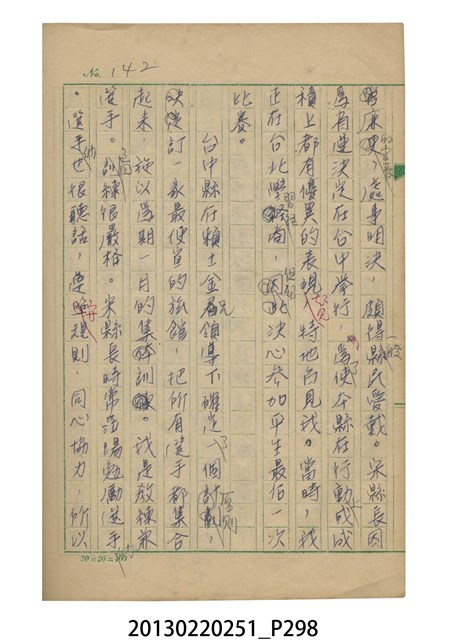 No. 142
廉更，處事明決，頗得縣民一般愛戴。宋縣長因
為省運決定在台中舉行，為了使本縣在行動或成
積上都有優異的表現，特地召見我。當時，我
正在台北學習經商，但因此決心參加平生最后一次
比賽。
台中縣在賴土金兄領導下確定了一個原則，
決定訂一家最便宜的旅館，把所有選手都集合
起來，施以為期一月的集體訓練。我是教練兼
選手。訓練很嚴格。宋縣長時常蒞場勉勵選手
。選手們也很聽話，遵守規則，同心協力，所以
20×20=400
20130220251_P298